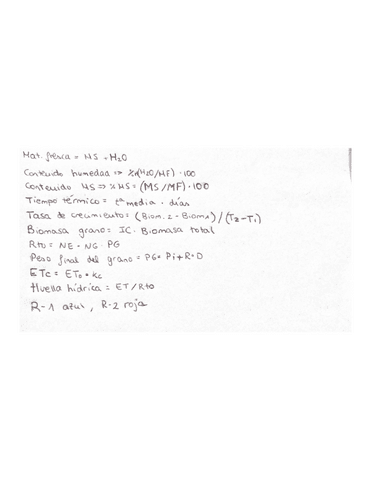 Mat. fresca = MS + H2O
Contenido humedad => %(H2O/MF) · 100
Contenido MS => % MS = (MS/MF) · 100
Tiempo térmico = tª media · días
Tasa de crecimiento = (Biom. 2 - Biom 1) / (T2 - T1)
Biomasa grano = IC · Biomasa total
Rto = NE · NG · PG
Peso final del grano = PG = Pi + R · D
ETc = ETo · Kc
Huella hídrica = ET / Rto
R-1 azul, R-2 roja